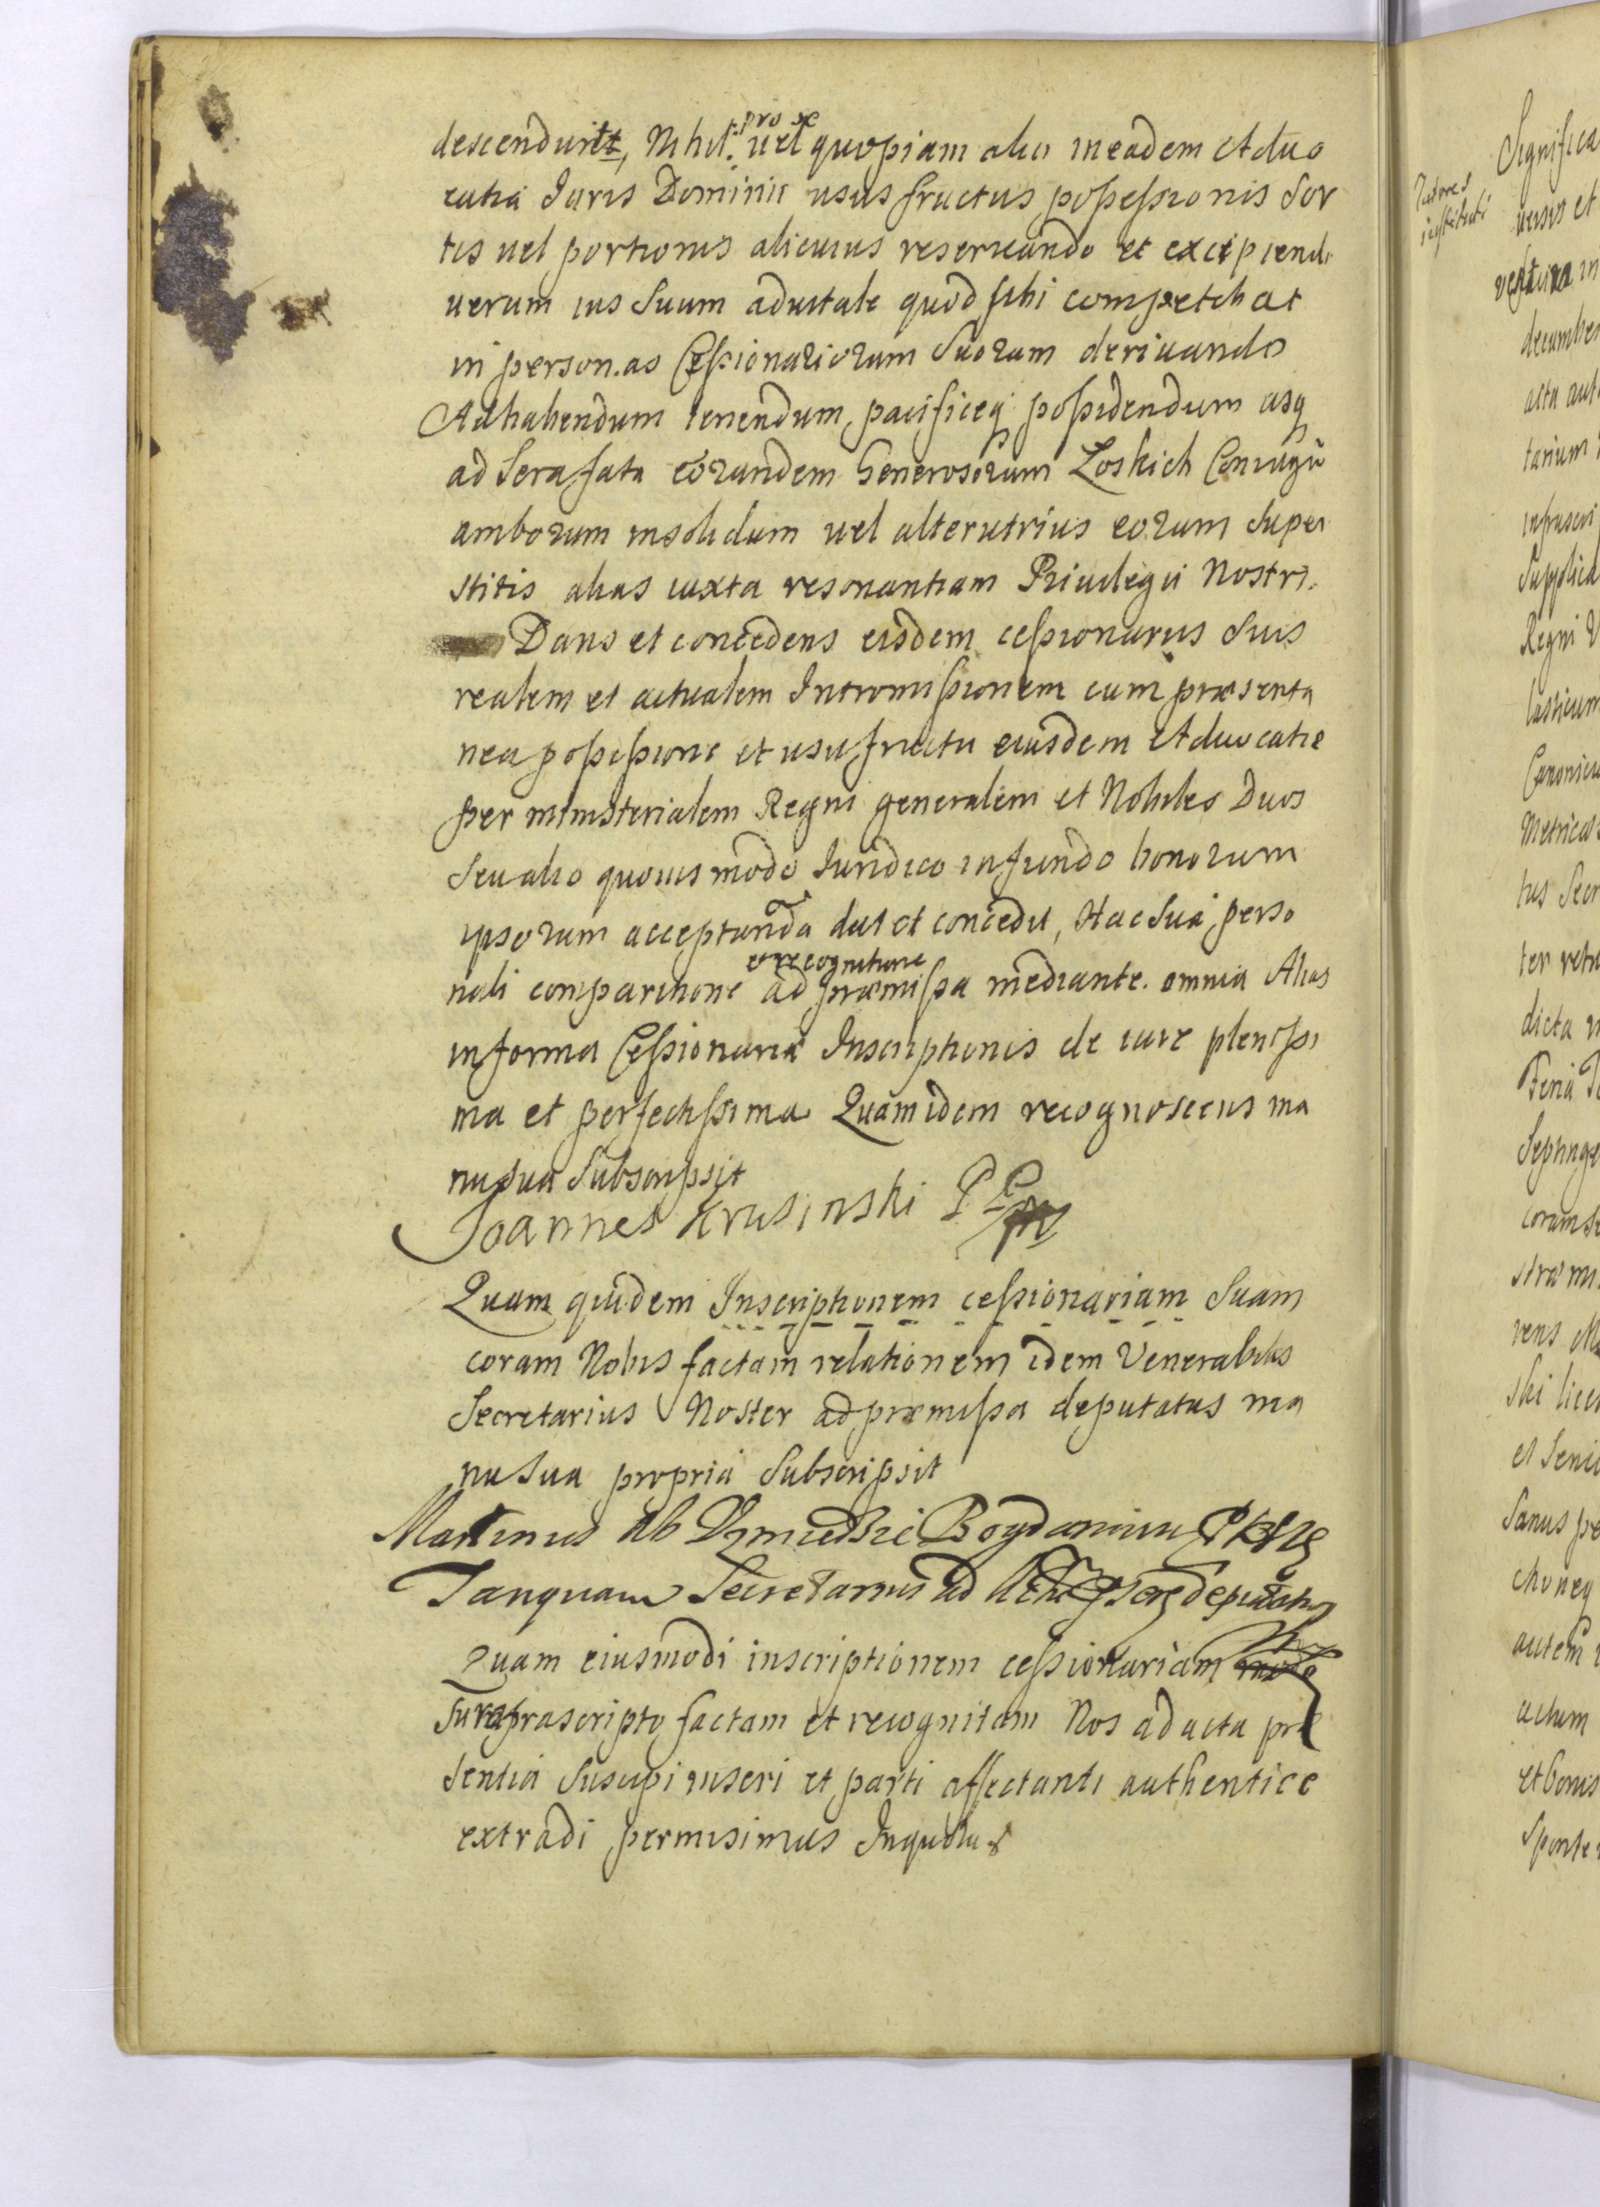 descendunt, Nihil pro se uel quopiam alio in eadem Aduo
catia Juris Dominii usus fructus possessionis Sor
tis uel portionis alicuius reseruando et excipiendo
uerum ius Suum aduitale quod sibi competebat
in personas Cessionariorum Suorum deriuando
Ad habendum tenendum, pacificeq possidendum usq
ad Sera fata eorundem Generosorum Loskich Coniugū
amborum insolidum uel alterutrius eorum Super
stitis alias iuxta resonantiam Priuilegii Nostri.
Dans et concedens eisdem cessionariis Suis
realem et actualem Intromissionem cum præsenta
nea possessione et usufructu eiusdem Aduocatiæ
per ministerialem Regni generalem et Nobiles Duos
Seu alio quouis modo Juridico in fundo bonorum
ipsorum acceptanda dat et concedit, Hac Sua perso
nali comparitione et recognitione ad præmissa mediante. omnia Alias
in forma Cessionariæ Inscriptionis de iure plenissi
ma et perfectissima Quam idem recognoscens ma
nu sua Subscripsit
Joannes Krusinski
Quam quidem Inscriptionem cessionariam Suam
coram Nobis factam relationem idem Venerabilis
Secretarius Noster ad præmissa deputatus ma
nu Sua propria Subscripsit
Martinus ab
Tanquam Secretarius ad
Quam eiusmodi inscriptionem cessionariam modo
Supra præscripto factam et recognitam Nos ad acta præ
sentia Suscipi inseri et parti affectanti authentice
extradi permisimus In quorum
Tutores
instituti
Significa
uersis et
in
decumben
alta aut
tarium
infrascri
Supplica
Regni
lasticum
Canonicu
Metrica
tus Secr
ter retu
dicta
Feria
Septinge
coram
stræ
vens
ski lice
et Seni
Sanus pe
autem
actum
et bonis
Sponte